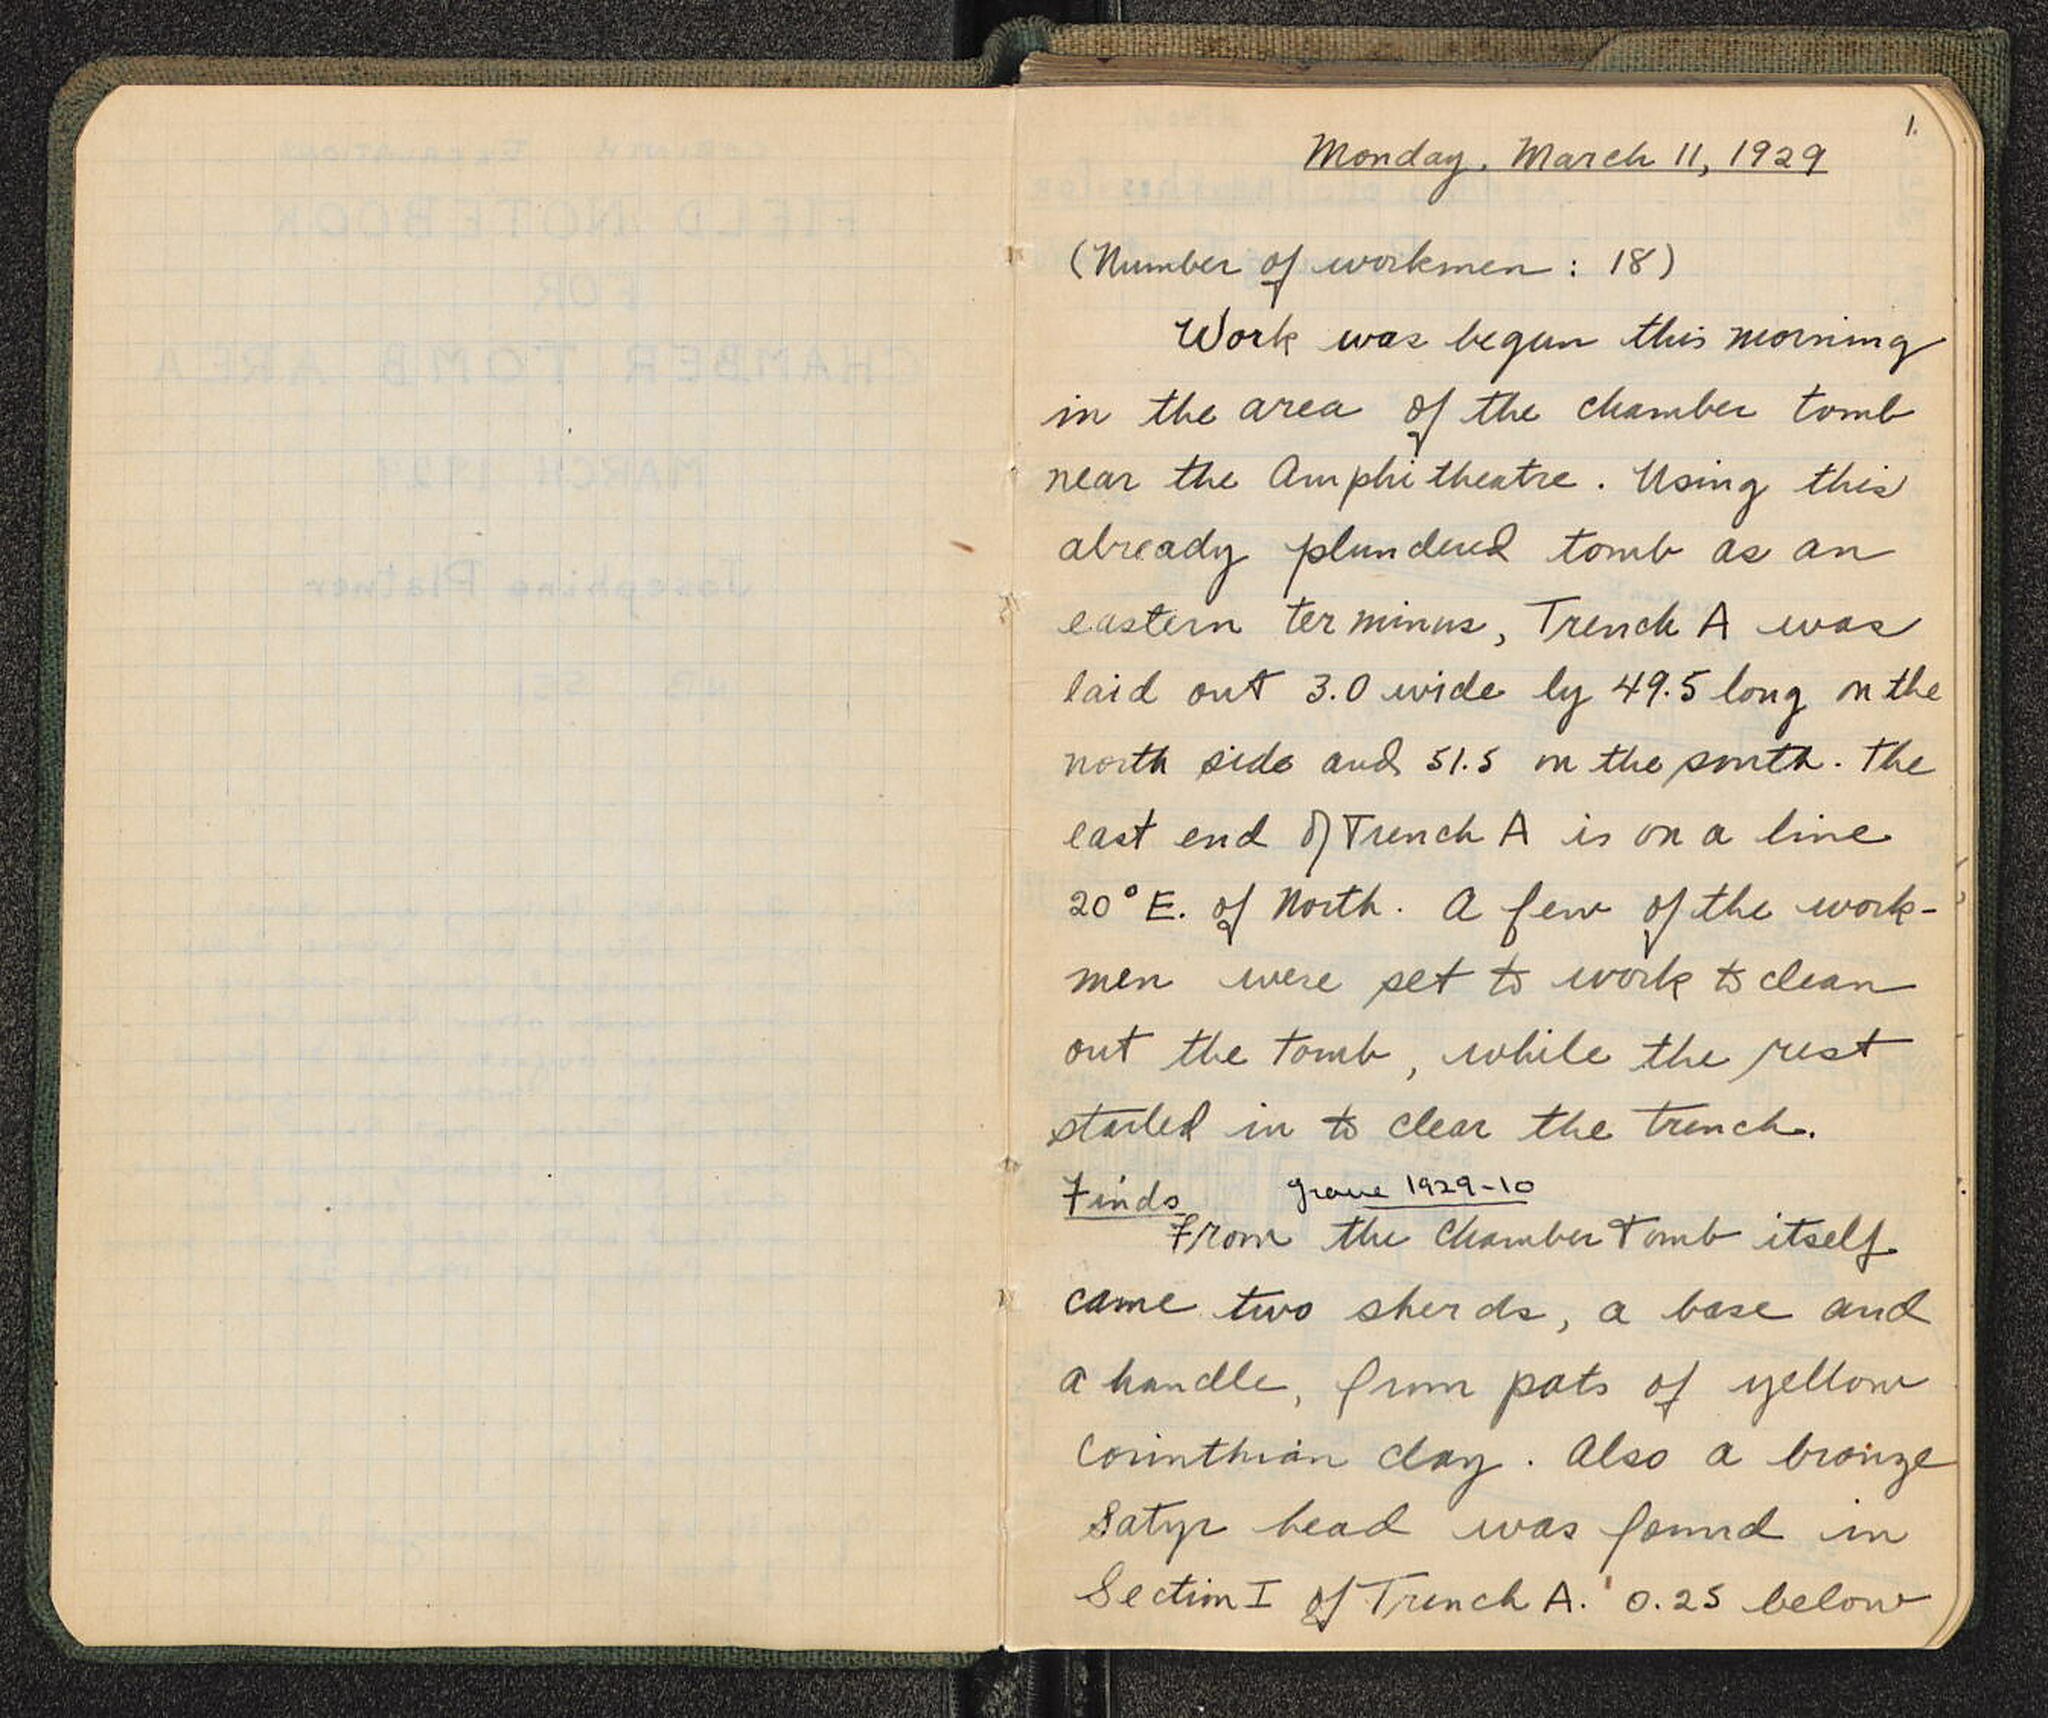 1.
Monday, March 11, 1929
(Number of workmen : 18)
Work was begun this morning
in the area of the chamber tomb
near the Amphitheatre. Using this
already plundered tomb as an
eastern terminus, Trench A was
laid out 3.0 wide by 49.5 long on the
north side and 51.5 on the south. The
east end of Trench A is on a line
20° E. of North. A few of the work-
men were set to work to clean
out the tomb, while the rest
started in to clear the trench.
Finds grave 1929-10
From the Chamber Tomb itself
came two sherds, a base and
a handle, from pots of yellow
Corinthian clay. Also a bronze
Satyr head was found in
Section I of Trench A. 0.25 below
CORINTH EXCAVATIONS
FIELD NOTEBOOK
FOR
CHAMBER TOMB AREA
MARCH 1929
Josephine Platner